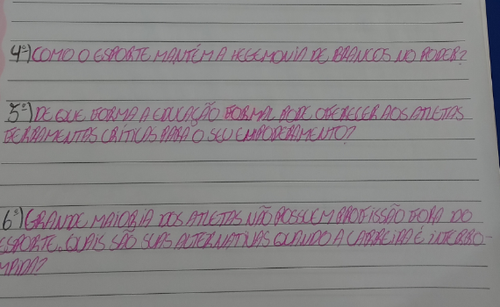 4º) COMO O ESPORTE MANTÉM A HEGEMONIA DE BRANCOS NO PODER?
5º) DE QUE FORMA A EDUCAÇÃO FORMAL PODE OFERECER AOS ATLETAS
FERRAMENTAS CRÍTICAS PARA O SEU EMPODERAMENTO?
6º) GRANDE MAIORIA DOS ATLETAS NÃO POSSUEM PROFISSÃO FORA DO
ESPORTE. QUAIS SÃO SUAS ALTERNATIVAS QUANDO A CARREIRA É INTERRO-
MPIDA?